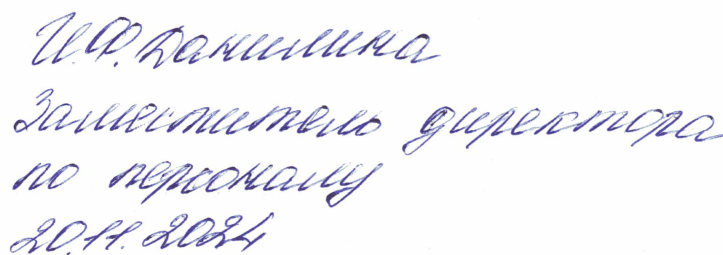 И.Ф. Данилина
Заместитель директора
по персоналу
20.11.2024